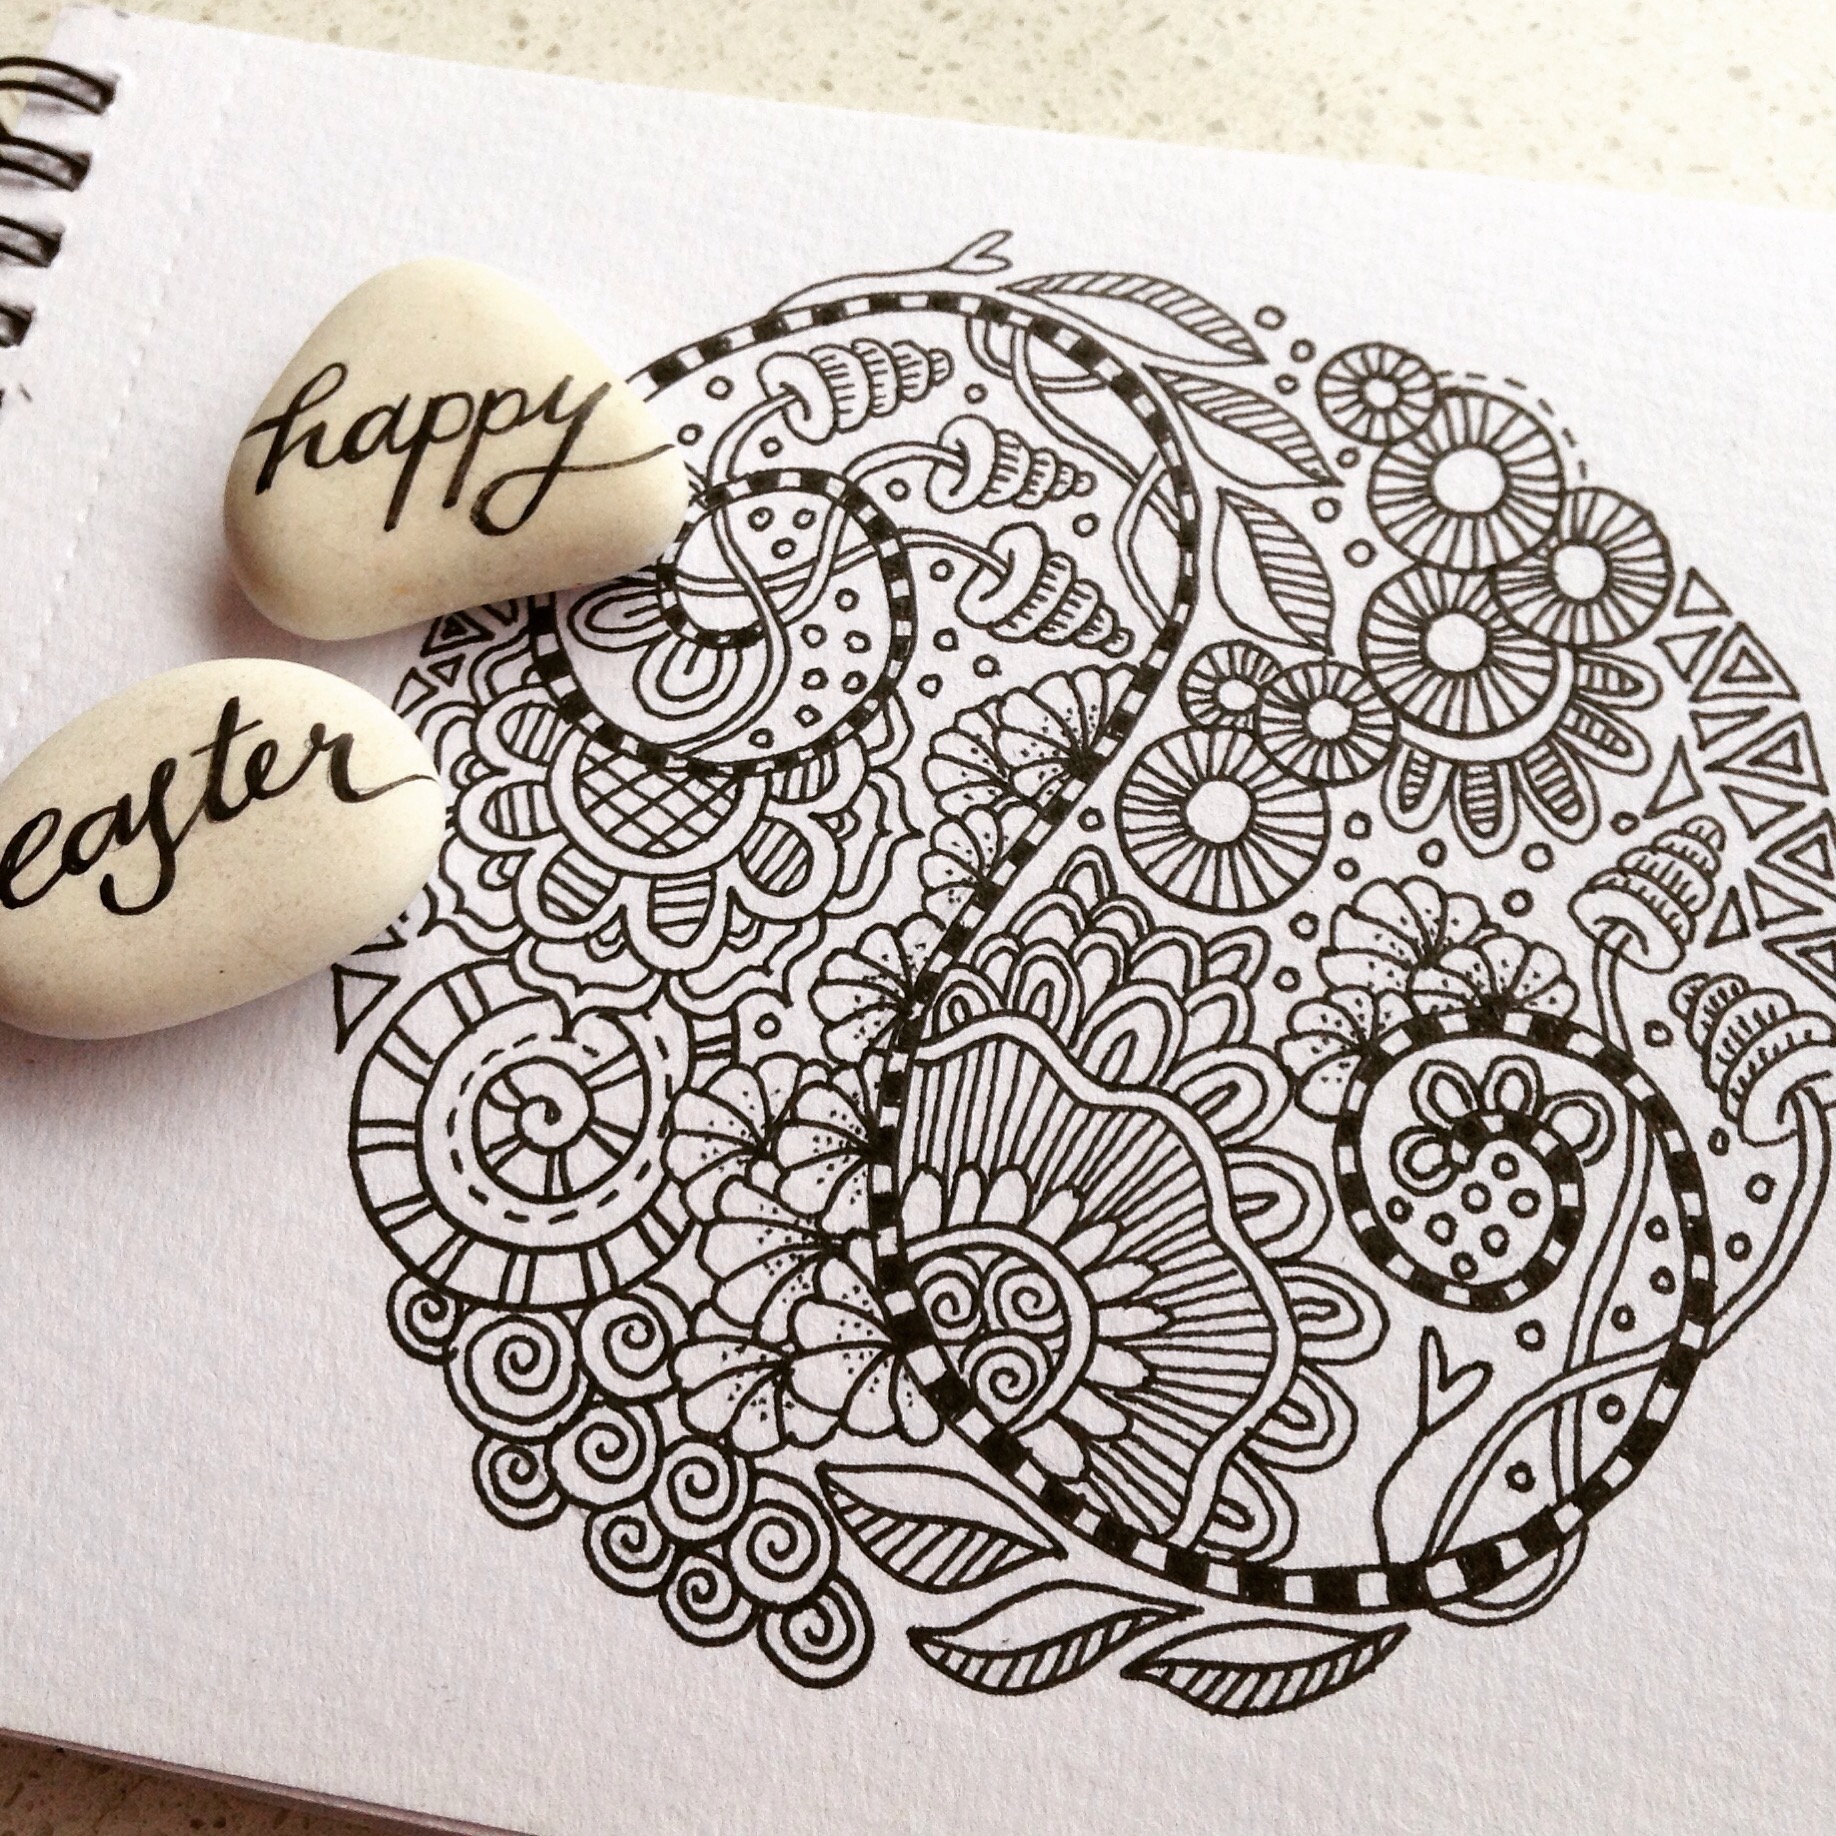 happy
easter